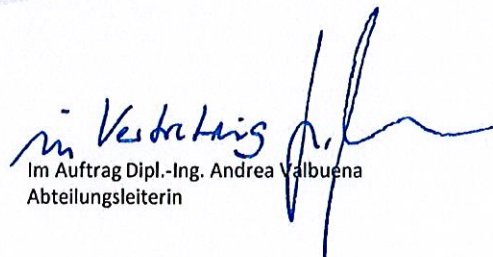 in Vertretung
Im Auftrag Dipl.-Ing. Andrea Valbuena
Abteilungsleiterin